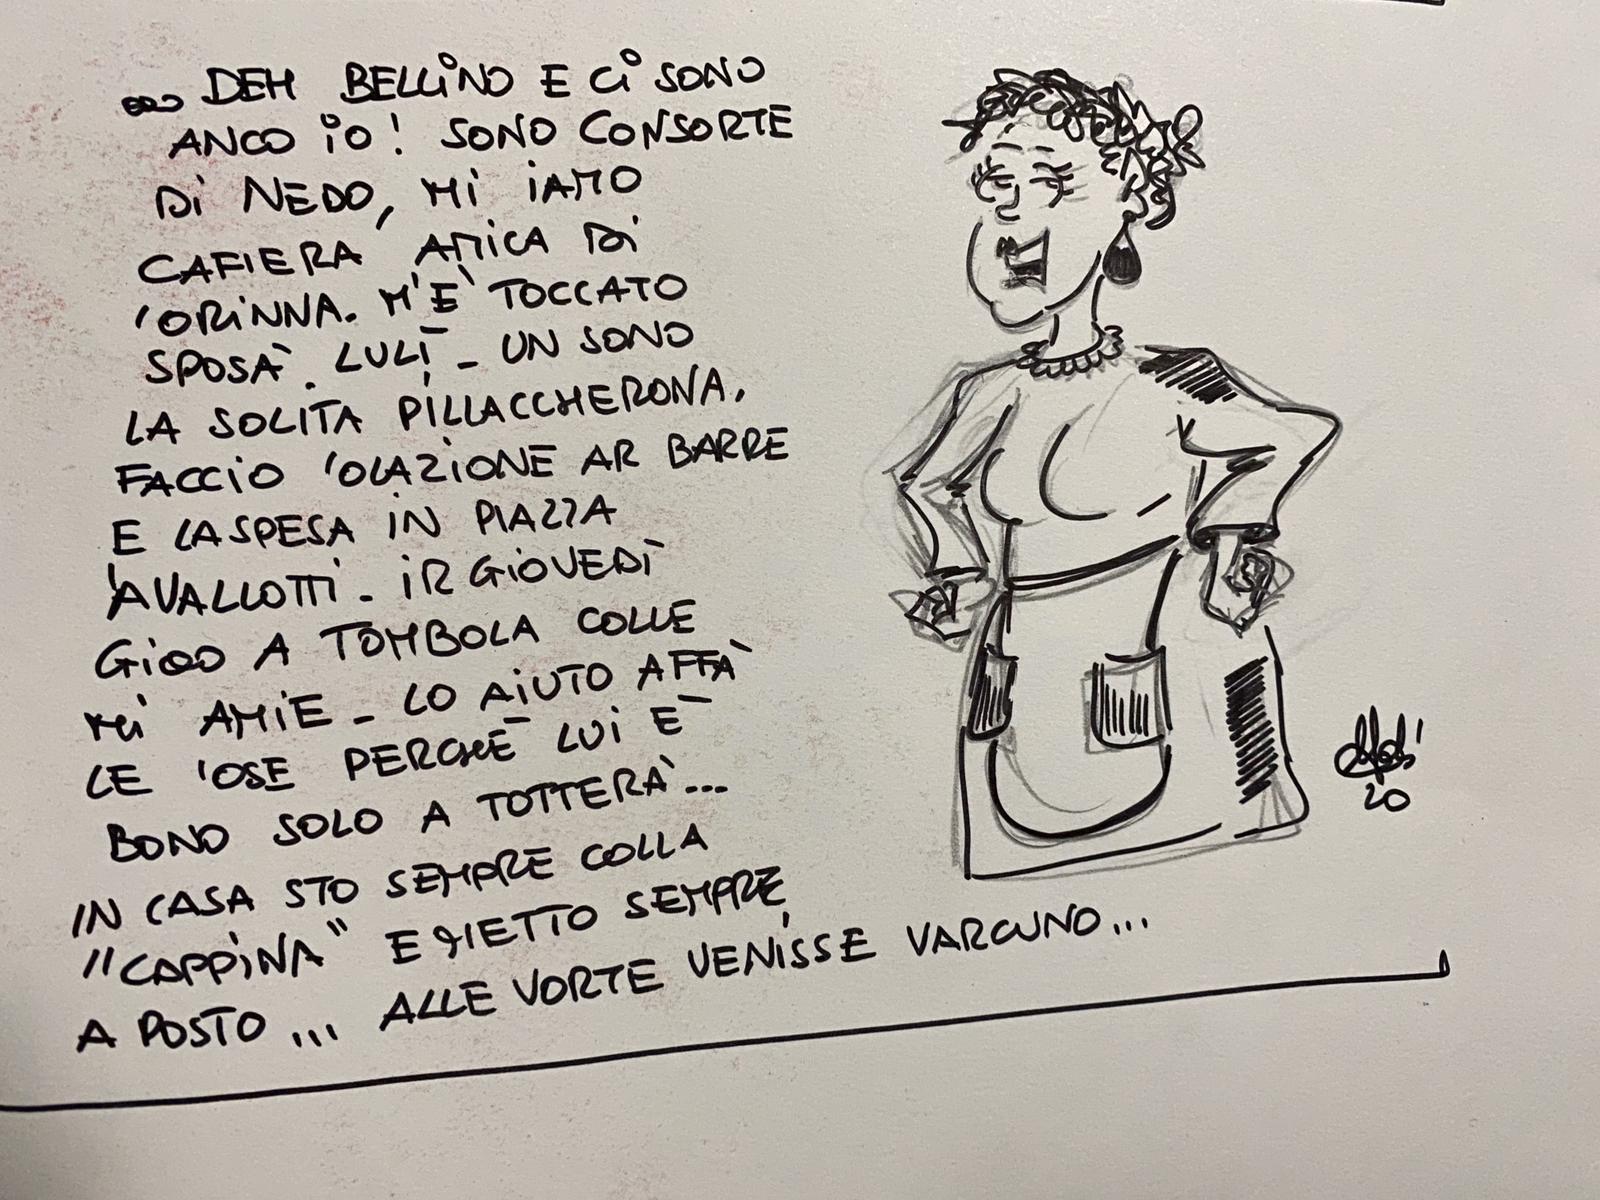 ... DEH BELLINO E CI SONO
ANCO IO! SONO CONSORTE
DI NEDO, MI IAMO
CAFIERA AMICA DI
'ORINNA. M'È TOCCATO
SPOSÀ. LULÌ - UN SONO
LA SOLITA PILLACCHERONA,
FACCIO 'OLAZIONE AR BARRE
E LA SPESA IN PIAZZA
'AVALLOTTI - IR GIOVEDÌ
GIOO A TOMBOLA COLLE
MI AMIE - LO AIUTO AFFÀ
LE 'OSE PERCHÉ LUI È
BONO SOLO A TOTTERÀ...
IN CASA STO SEMPRE COLLA
"CAPPINA" E METTO SEMPRE
A POSTO... ALLE VORTE VENISSE VARCUNO...
20